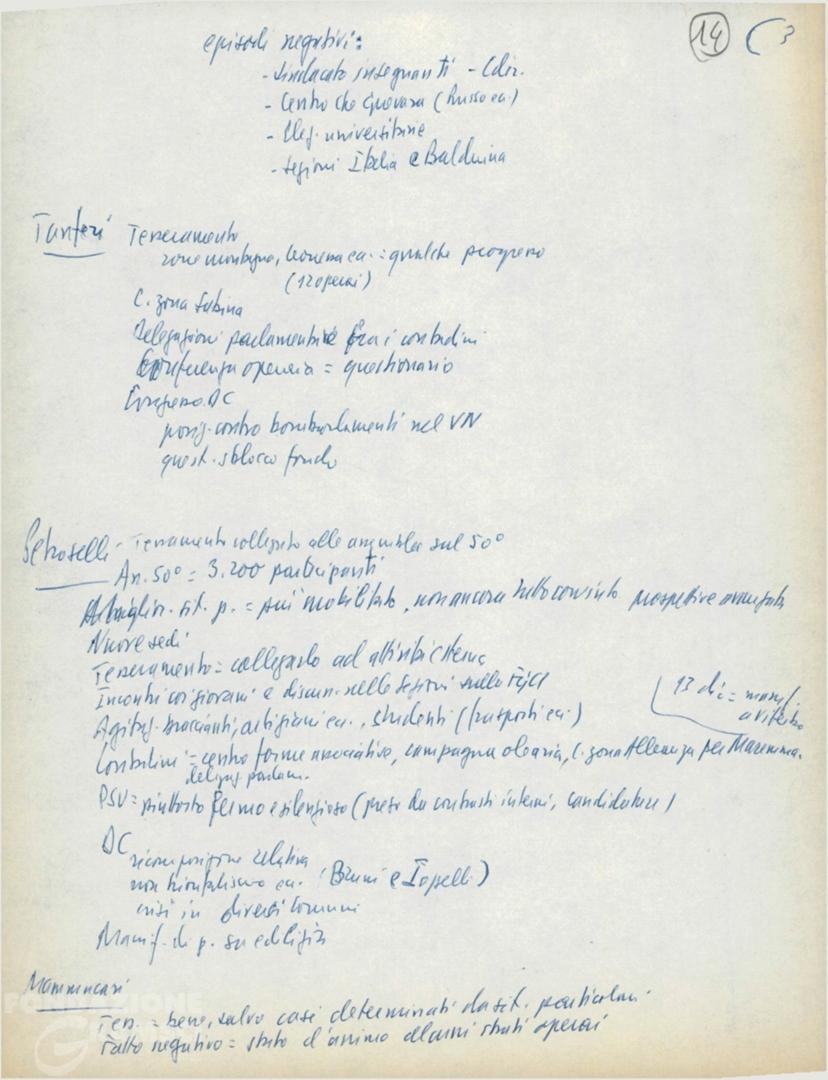 14 ( 3
episodi negativi:
- Sindacato insegnanti - Cdiz.
- Centro che guevara (Russo ea.)
- Eleg. universitarie
- sezioni Italia e Balduina
Tanferi Tesseramento
zone montagna, ea. = qualche progresso
(12 operai)
C. zona Sabina
Delegazioni parlamentari fra i contadini
Conferenza operaia = questionario
Congresso DC
posiz. contro bombardamenti nel VN
quest. sblocco fondo
Petroselli - Tesseramento collegato alle assemblee sul 50°
An. 50° = 3.200 partecipanti
sit. p. = più mobilitato, non ancora tutto convinto prospettive avanzata
Nuove sedi
Tesseramento = collegarlo ad attività esterna
Incontri coi giovani e discuss. nelle sezioni sulla FGCI
Agitaz. braccianti, artigiani ea., studenti (trasporti ea.)
13 dic = manif.
a Viterbo
Contadini = centro forme associative, campagna olearia, C. zona Alleanza per Maremma.
delegaz. parlam.
PSU = piuttosto fermo e silenzioso (preso da contrasti interni, candidature)
DC
ricomposizione relativa
non trionfalismo ea. (Bruni e Iopelli)
crisi in diversi comuni
Manif. di p. su edilizia
Mammucari
Tess. = bene, salvo casi determinati da sit. particolari
Fatto negativo = stato d'animo alcuni strati operai
FONDAZIONE
G